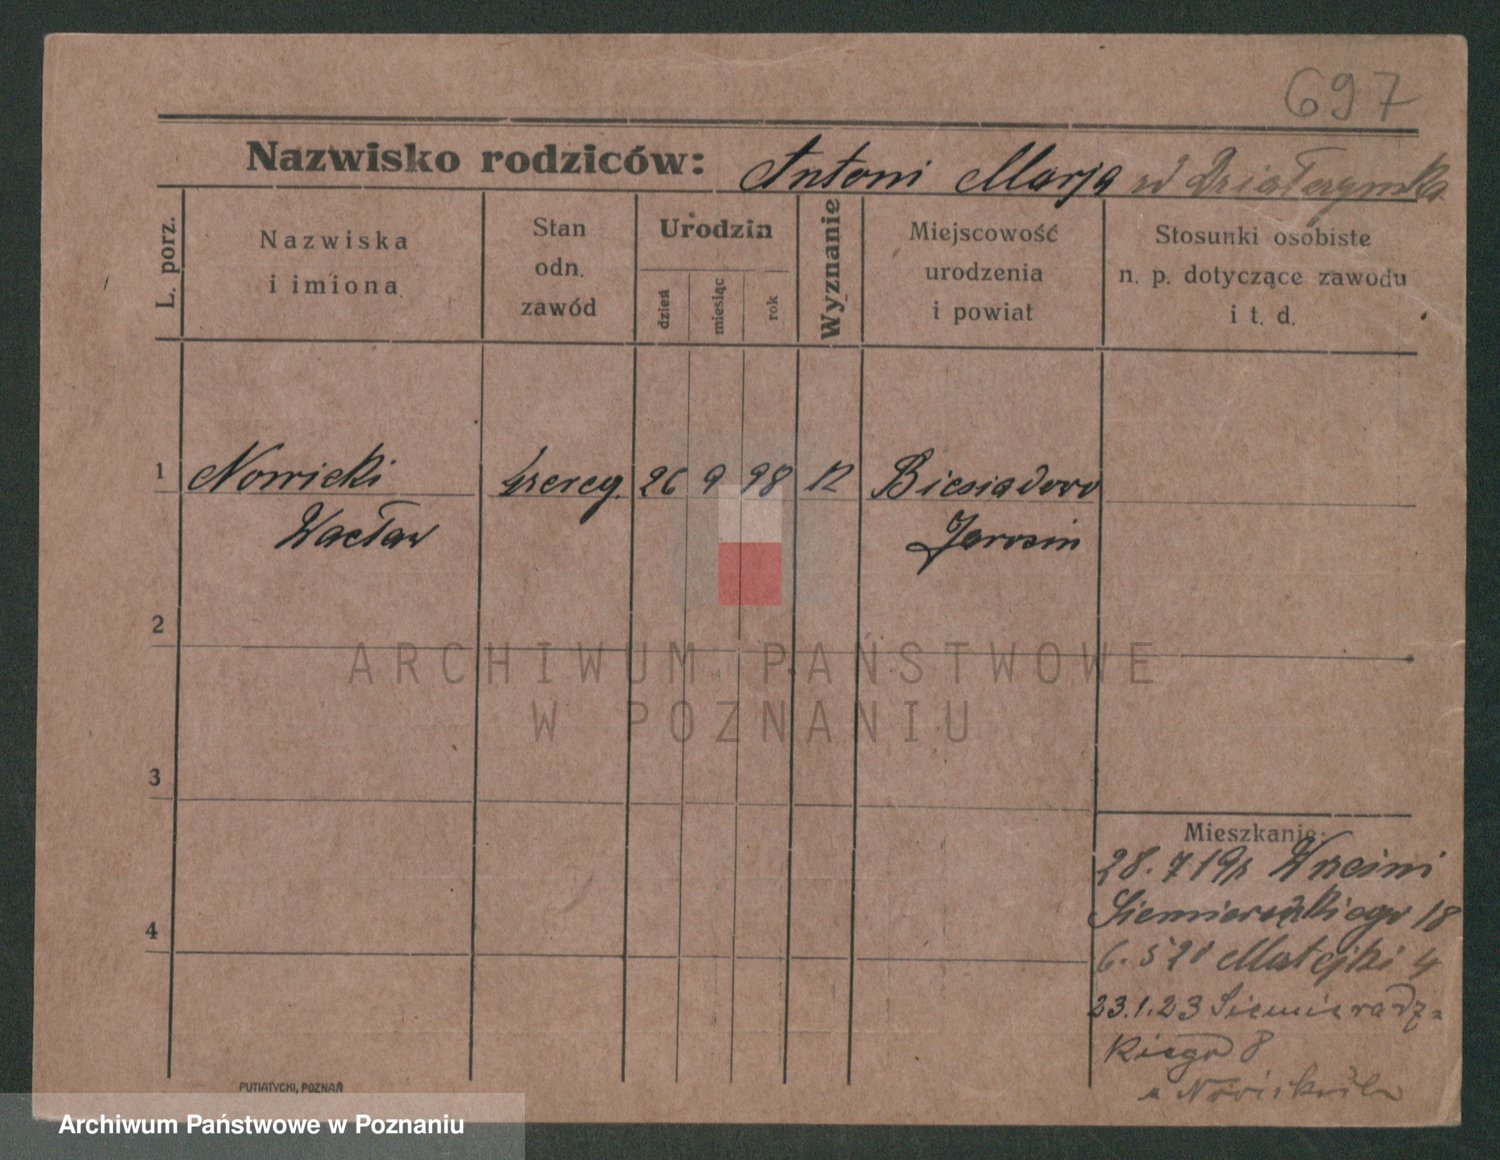 697
Nazwisko rodziców: Antoni Marja
L. porz.
Nazwiska
i imiona
Stan
odn.
zawód
Urodzin
dzień
miesiąc
rok
Wyznanie
Miejscowość
urodzenia
i powiat
Stosunki osobiste
n. p. dotyczące zawodu
i t. d.
1 Nowicki 26 9 98 Biesiadowo
Wacław Jarocin
2
ARCHIWUM PAŃSTWOWE
W POZNANIU
3
Mieszkanie:
28. 7
18
4
Matejki 4
23.1.23 Siemieradz=
kiego 8
PUTIATYCKI, POZNAŃ
Archiwum Państwowe w Poznaniu